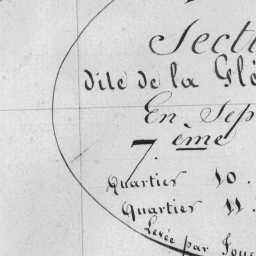 Secti
dite de la Glé
En Sep
7.ème
Quartier 10.
Quartier 11.
Levée par Fouc